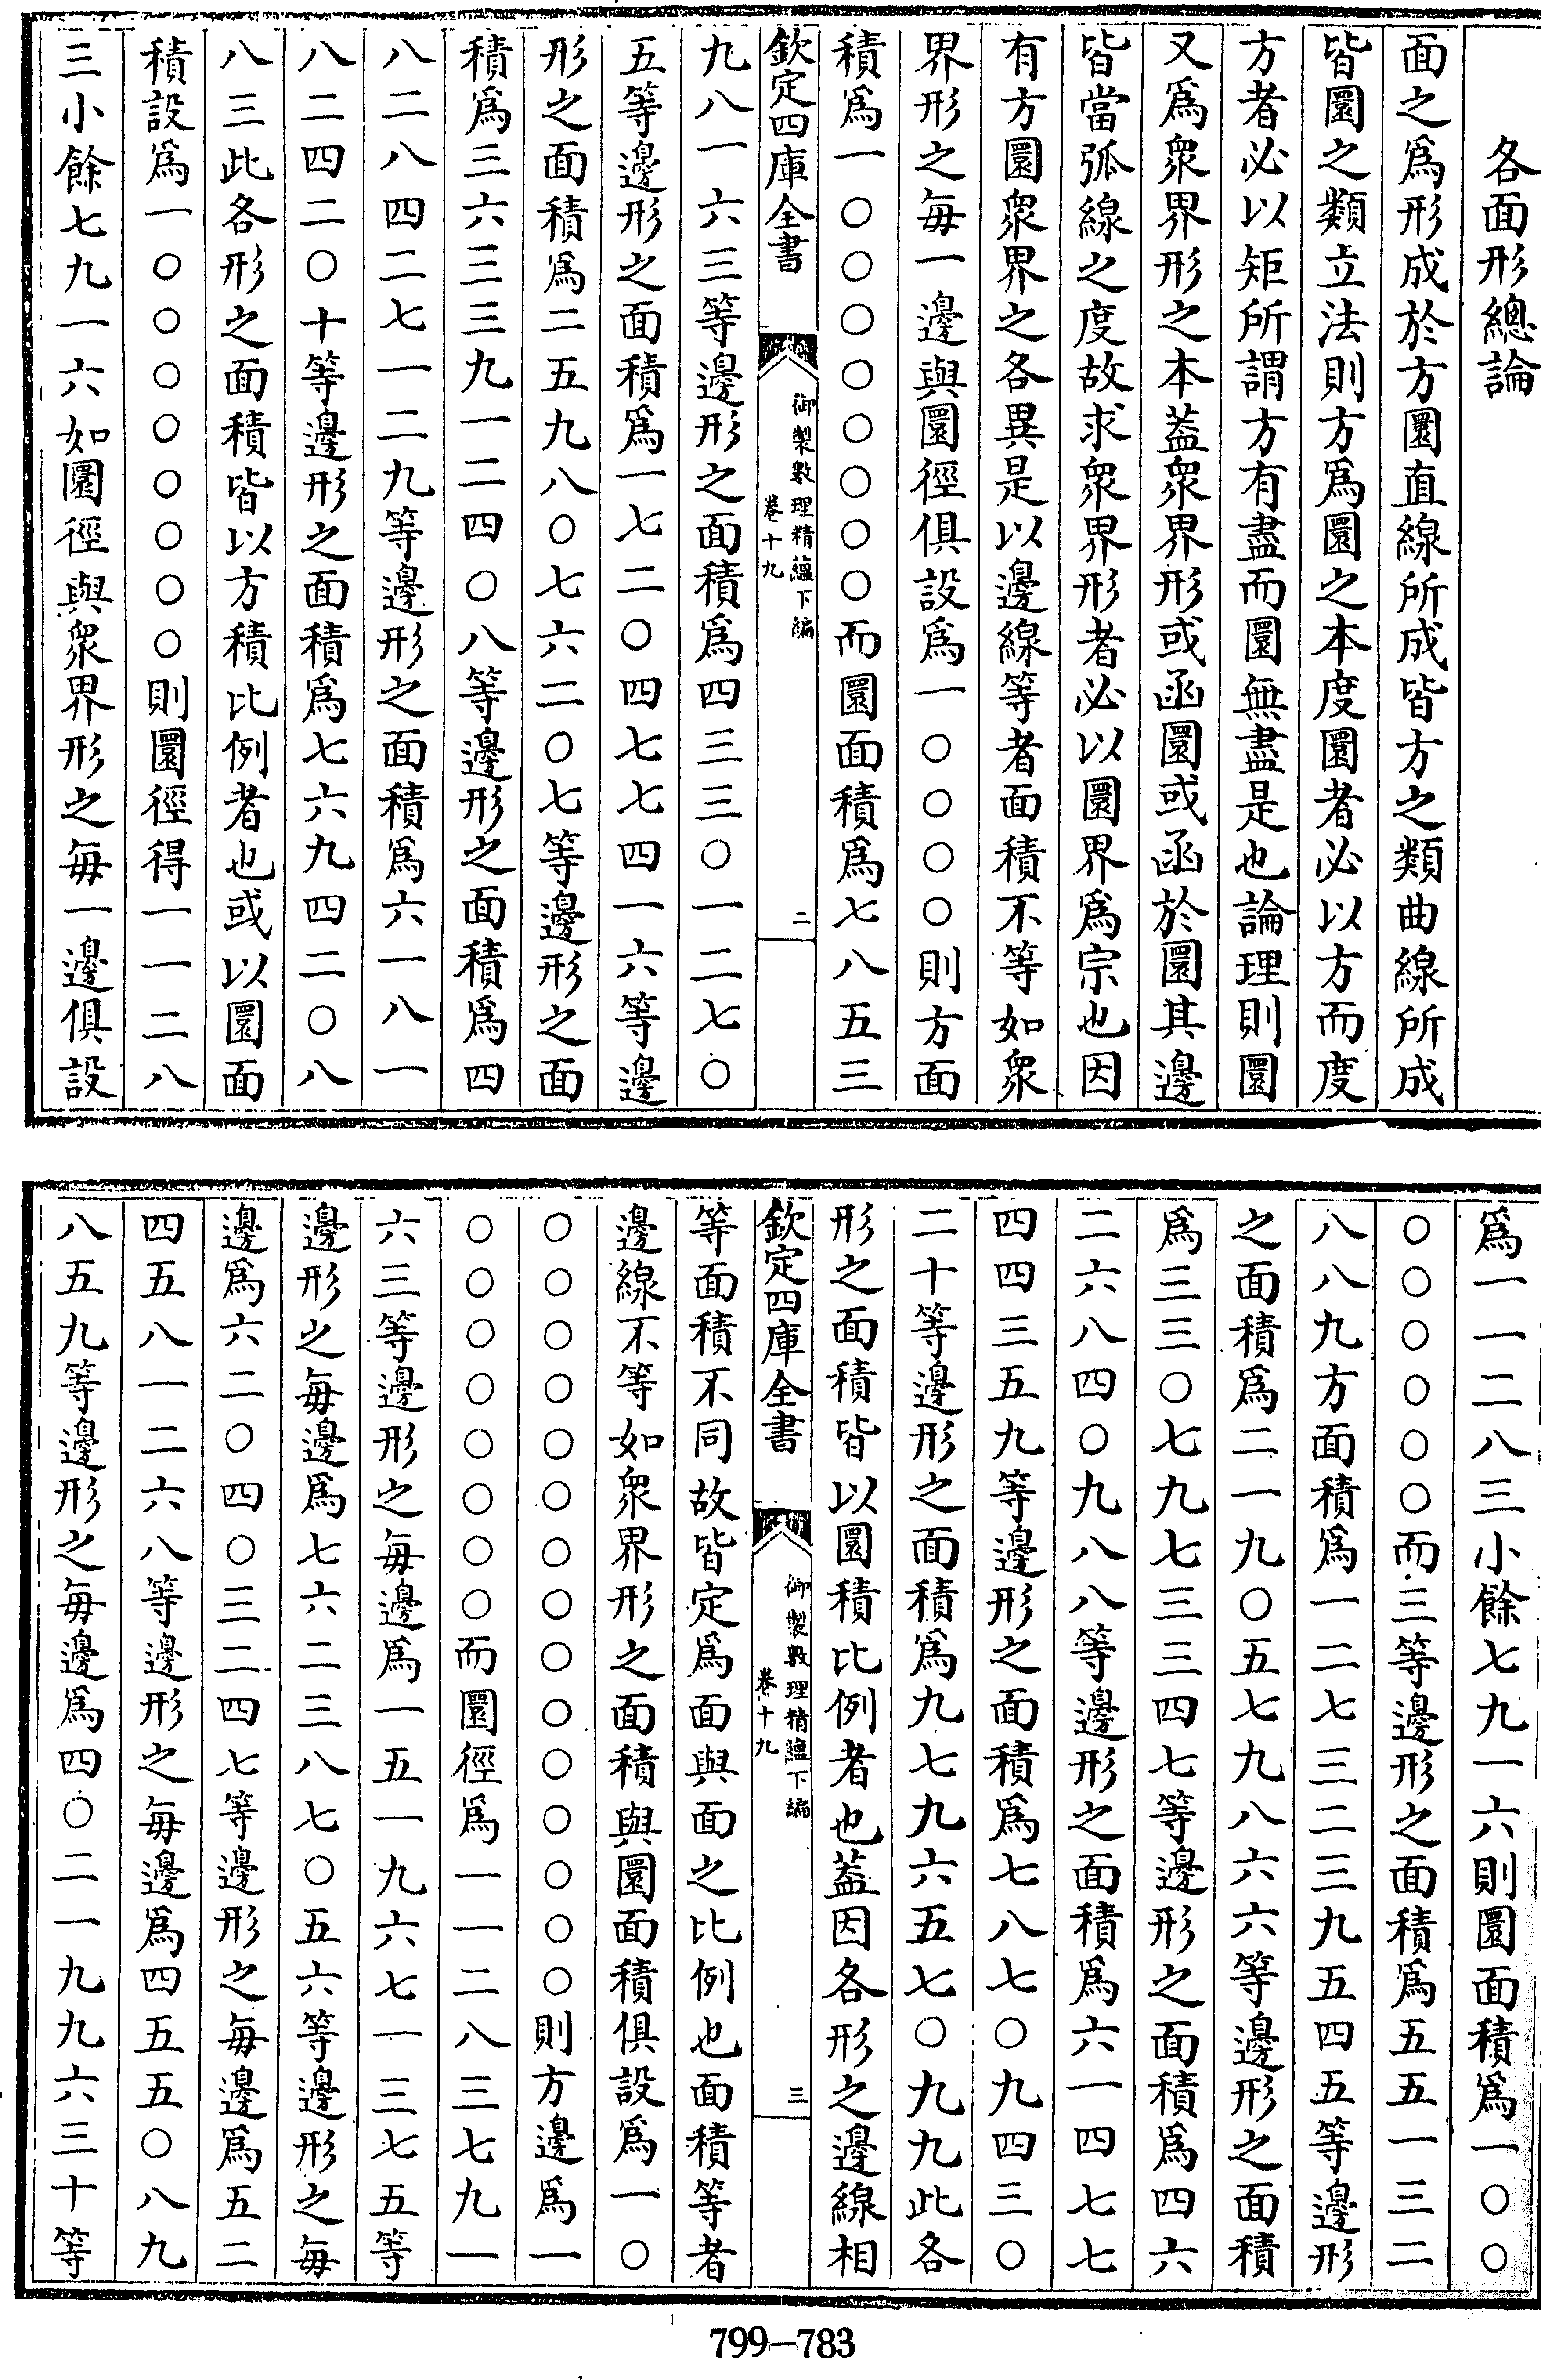 各面形總論
面之為形成於方圜直線所成皆方之類曲線所成
皆圜之類立法則方為圜之本度圜者必以方而度
方者必以矩所謂方有盡而圜無盡是也論理則圜
又為衆界形之本葢衆界形或函圜或函於圜其邊
皆當弧線之度故求衆界形者必以圜界為宗也因
有方圜衆界之各異是以邊線等者面積不等如衆
界形之毎一邊與圜徑俱設為一〇〇〇〇則方面
積為一〇〇〇〇〇〇〇〇而圜面積為七八五三
欽定四庫全書
御製數理精蘊下編
卷十九
二
九八一六三等邊形之面積為四三三〇一二七〇
五等邊形之面積為一七二〇四七七四一六等邊
形之面積為二五九八〇七六二〇七等邊形之面
積為三六三三九一二四〇八等邊形之面積為四
八二八四二七一二九等邊形之面積為六一八一
八二四二〇十等邊形之面積為七六九四二〇八
八三此各形之面積皆以方積比例者也或以圜面
積設為一〇〇〇〇〇〇〇〇則圜徑得一一二八
三小餘七九一六如圜徑與衆界形之毎一邊俱設
為一一二八三小餘七九一六則圜面積為一〇〇
〇〇〇〇〇〇而三等邊形之面積為五五一三二
八八九方面積為一二七三二三九五四五等邊形
之面積為二一九〇五七九八六六等邊形之面積
為三三〇七九七三三四七等邊形之面積為四六
二六八四〇九八八等邊形之面積為六一四七七
四四三五九九等邊形之面積為七八七〇九四三〇
二十等邊形之面積為九七九六五七〇九九此各
形之面積皆以圜積比例者也葢因各形之邊線相
欽定四庫全書
御製數理精蘊下編
卷十九
三
等面積不同故皆定為面與面之比例也面積等者
邊線不等如衆界形之面積與圜面積俱設為一〇
〇〇〇〇〇〇〇〇〇〇〇〇〇〇〇則方邊為一
〇〇〇〇〇〇〇〇而圜徑為一一二八三七九一
六三等邊形之毎邊為一五一九六七一三七五等
邊形之毎邊為七六二三八七〇五六等邊形之毎
邊為六二〇四〇三二四七等邊形之毎邊為五二
四五八一二六八等邊形之毎邊為四五五〇八九
八五九等邊形之毎邊為四〇二一九九六三十等
799—783